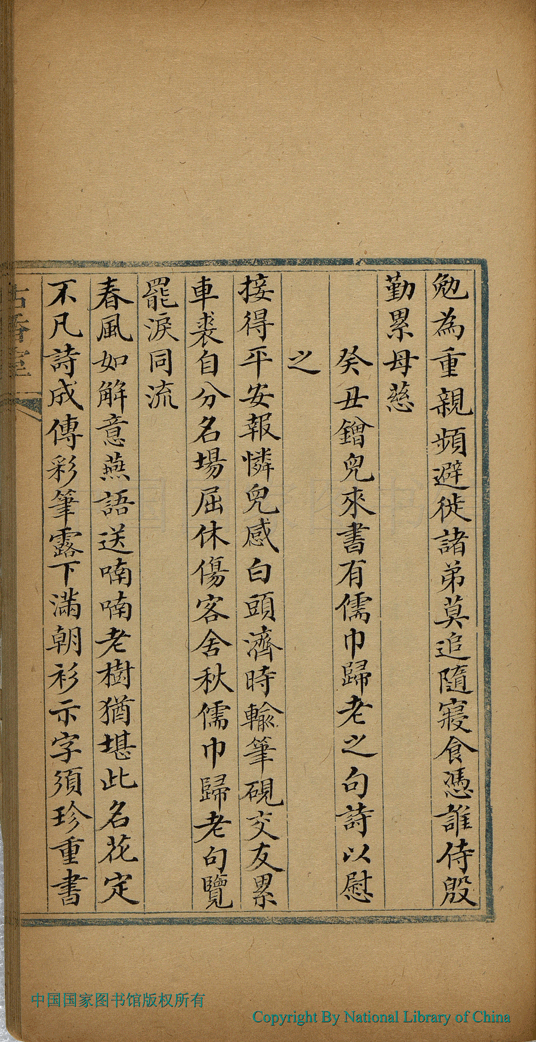 勉為重親頻避徙諸弟莫追隨寢食憑誰侍殷
勤累母慈
癸丑鎧兒來書有儒巾歸老之句詩以慰
之
接得平安報憐兒感白頭濟時輸筆硯交友累
車裘自分名場屈休傷客舍秋儒巾歸老句覽
罷淚同流
春風如解意燕語送喃喃老樹猶堪此名花定
不凡詩成傳彩筆露下滿朝衫示字須珍重書
中国国家图书馆版权所有
Copyright By National Library of China